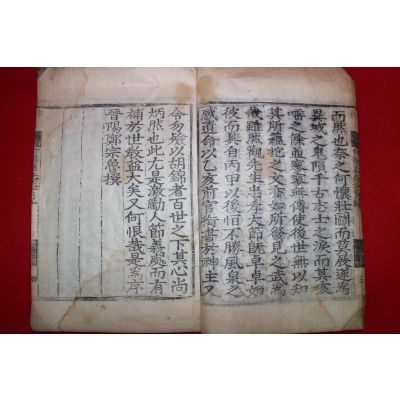 而然也奈之何懷壯圖而莫展遽爲
異域之鬼隕千古志士之淚而其咳
唾之餘並寥寥無傳使後世無以知
其所蘊抱之大亦如所後見之武爲
哉雖然觀先生忠孝大節旣卓卓如
彼而其自丙甲以後怛不勝風泉之
感遺命以乙亥前官銜書於神主又
令勿殮以胡錦者百世之下其心尚
炳然也此尤是激勵人節義處而有
補於世教益大矣又何恨哉是爲序
晉陽鄭宗魯撰